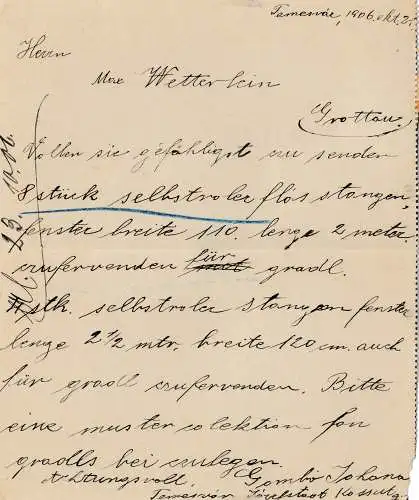 Temesvár, 1906. okt. 2
Herrn
Max Wetterlein
Grottau.
Vollen sie gefähligst zu senden
8 stück selbstroler flos stangen,
fenster breite 110. lenge 2 meter
zufervenden für gradl.
4 stk. selbstroler stangen fenster
lenge 2 1/2 mtr. breite 120 cm. auch
für gradl zufervenden. Bitte
eine muster colektion fon
gradls bei zulegen.
Achtungsvoll. Gombó Johana
Temesvár Josefstadt Kossuth